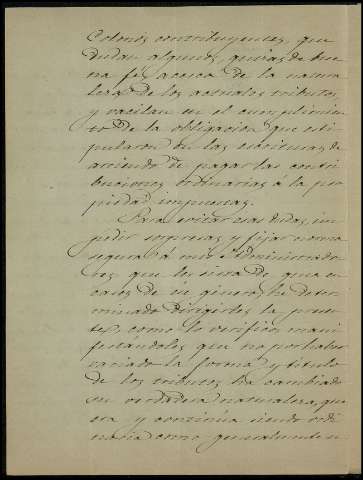 Colonos contribuyentes, que
dudan algunos, quizás de bue
na fé, acerca de la natura
leza de los actuales tributos
y vacilan en el cumplimien
to de la obligacion que esti
pularon en las escrituras de
arriendo de pagar las contri
buciones ordinarias á la pro
piedad impuestas.
Para evitar esas dudas, im
pedir sorpresas y fijar norma
segura á mis Administrado
res que les sirva de guia en
casos de su género, he deter
minado dirigirles la presen
te, como lo verifico mani
festándoles que no por haber
variado la forma y título
de los tributos ha cambiado
su verdadera naturaleza, que
era y continúa siendo ordi
naria como generalmente